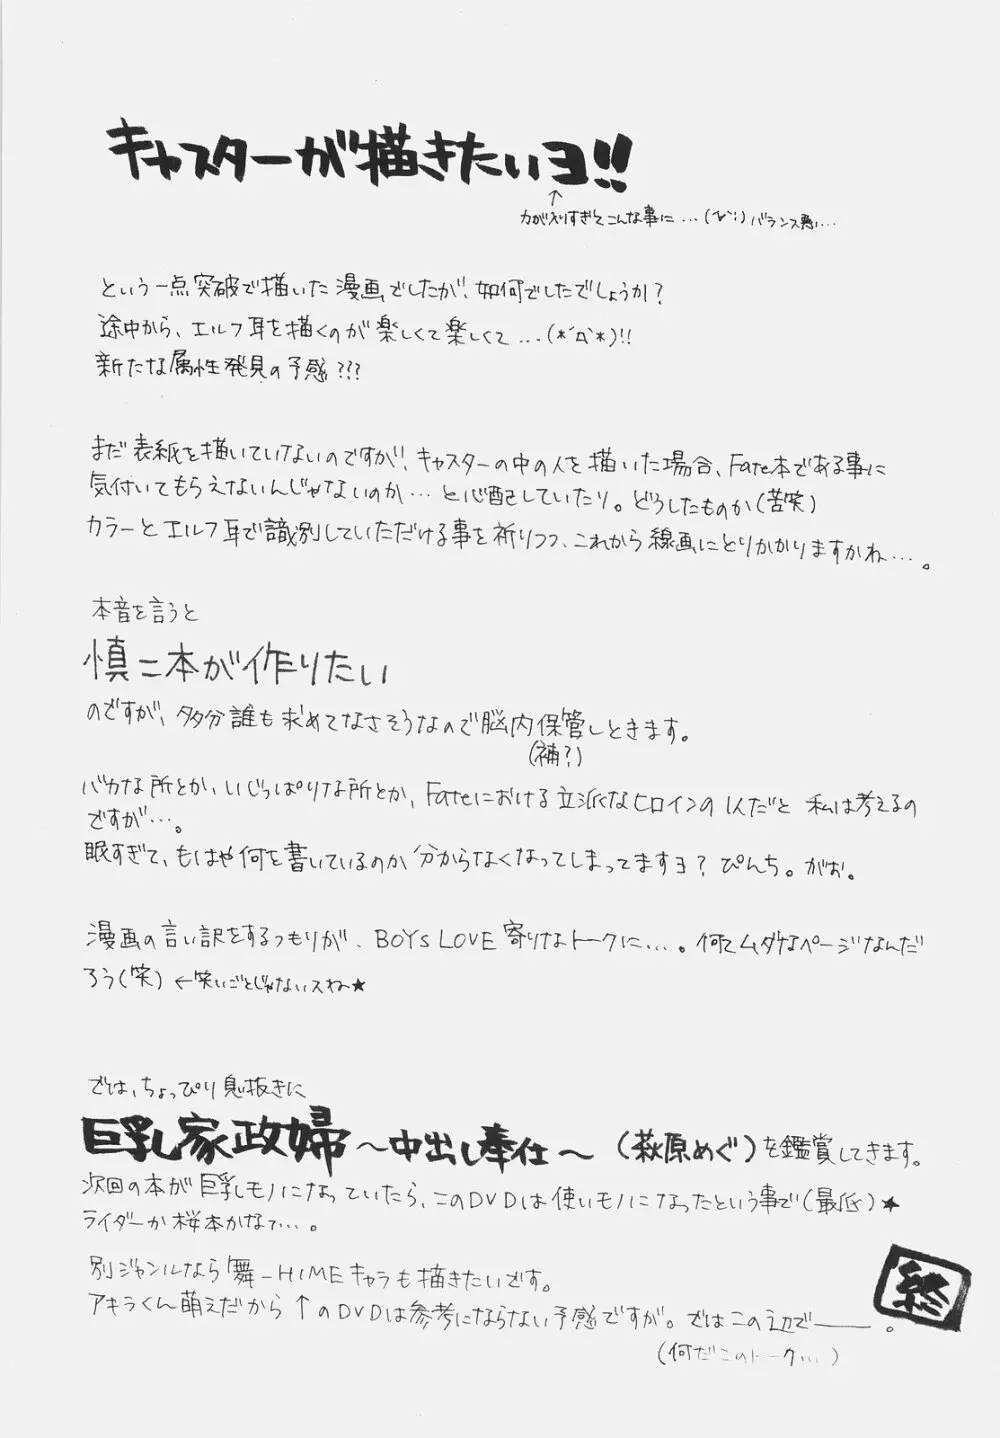 キャスターが描きたいヨ!!
↑
力が入りすぎてこんな事に…(ひ`;)バランス悪い…
という一点突破で描いた漫画でしたが、如何でしたでしょうか?
途中から、エルフ耳を描くのが楽しくて楽しくて…(*´Д`*)!!
新たな属性発見の予感???
まだ表紙を描いていないのですが、キャスターの中の人を描いた場合、Fate本である事に
気付いてもらえないんじゃないのか…と心配していたり。どうしたものか(苦笑)
カラーとエルフ耳で識別していただける事を祈りつつ、これから線画にとりかかりますかね…。
本音を言うと
慎二本が作りたい
のですが、多分誰も求めてなさそうなので脳内保管しときます。
(補?)
バカな所とか、いじっぱりな所とか、Fateにおける立派なヒロインの1人だと私は考えるの
ですが…。
眠すぎて、もはや何を書いているのか分からなくなってしまってますヨ?ぴんち。がお。
漫画の言い訳をするつもりが、BOYs LOVE寄りなトークに…。何てムダなページなんだ
ろう(笑)←笑いごとじゃないスね★
では、ちょっぴり息抜きに
巨乳家政婦~中出し奉仕~(萩原めぐ)を鑑賞してきます。
次回の本が巨乳モノになっていたら、このDVDは使いモノになったという事で(最低)★
ライダーか桜本かなぁ…。
別ジャンルなら舞-HiMEキャラも描きたいです。
アキラくん萌えだから↑のDVDは参考にならない予感ですが。ではこの辺で――。
(何だこのトーク…)
終